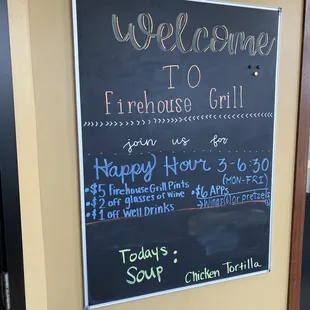 Welcome
TO
Firehouse Grill
join us for
Happy Hour 3-6:30
(MON-FRI)
• $5 Firehouse Grill Pints
• $2 off glasses of wine
• $1 off Well Drinks
• $6 Apps
→ Wings(6) or pretzels
Todays
Soup :
Chicken Tortilla